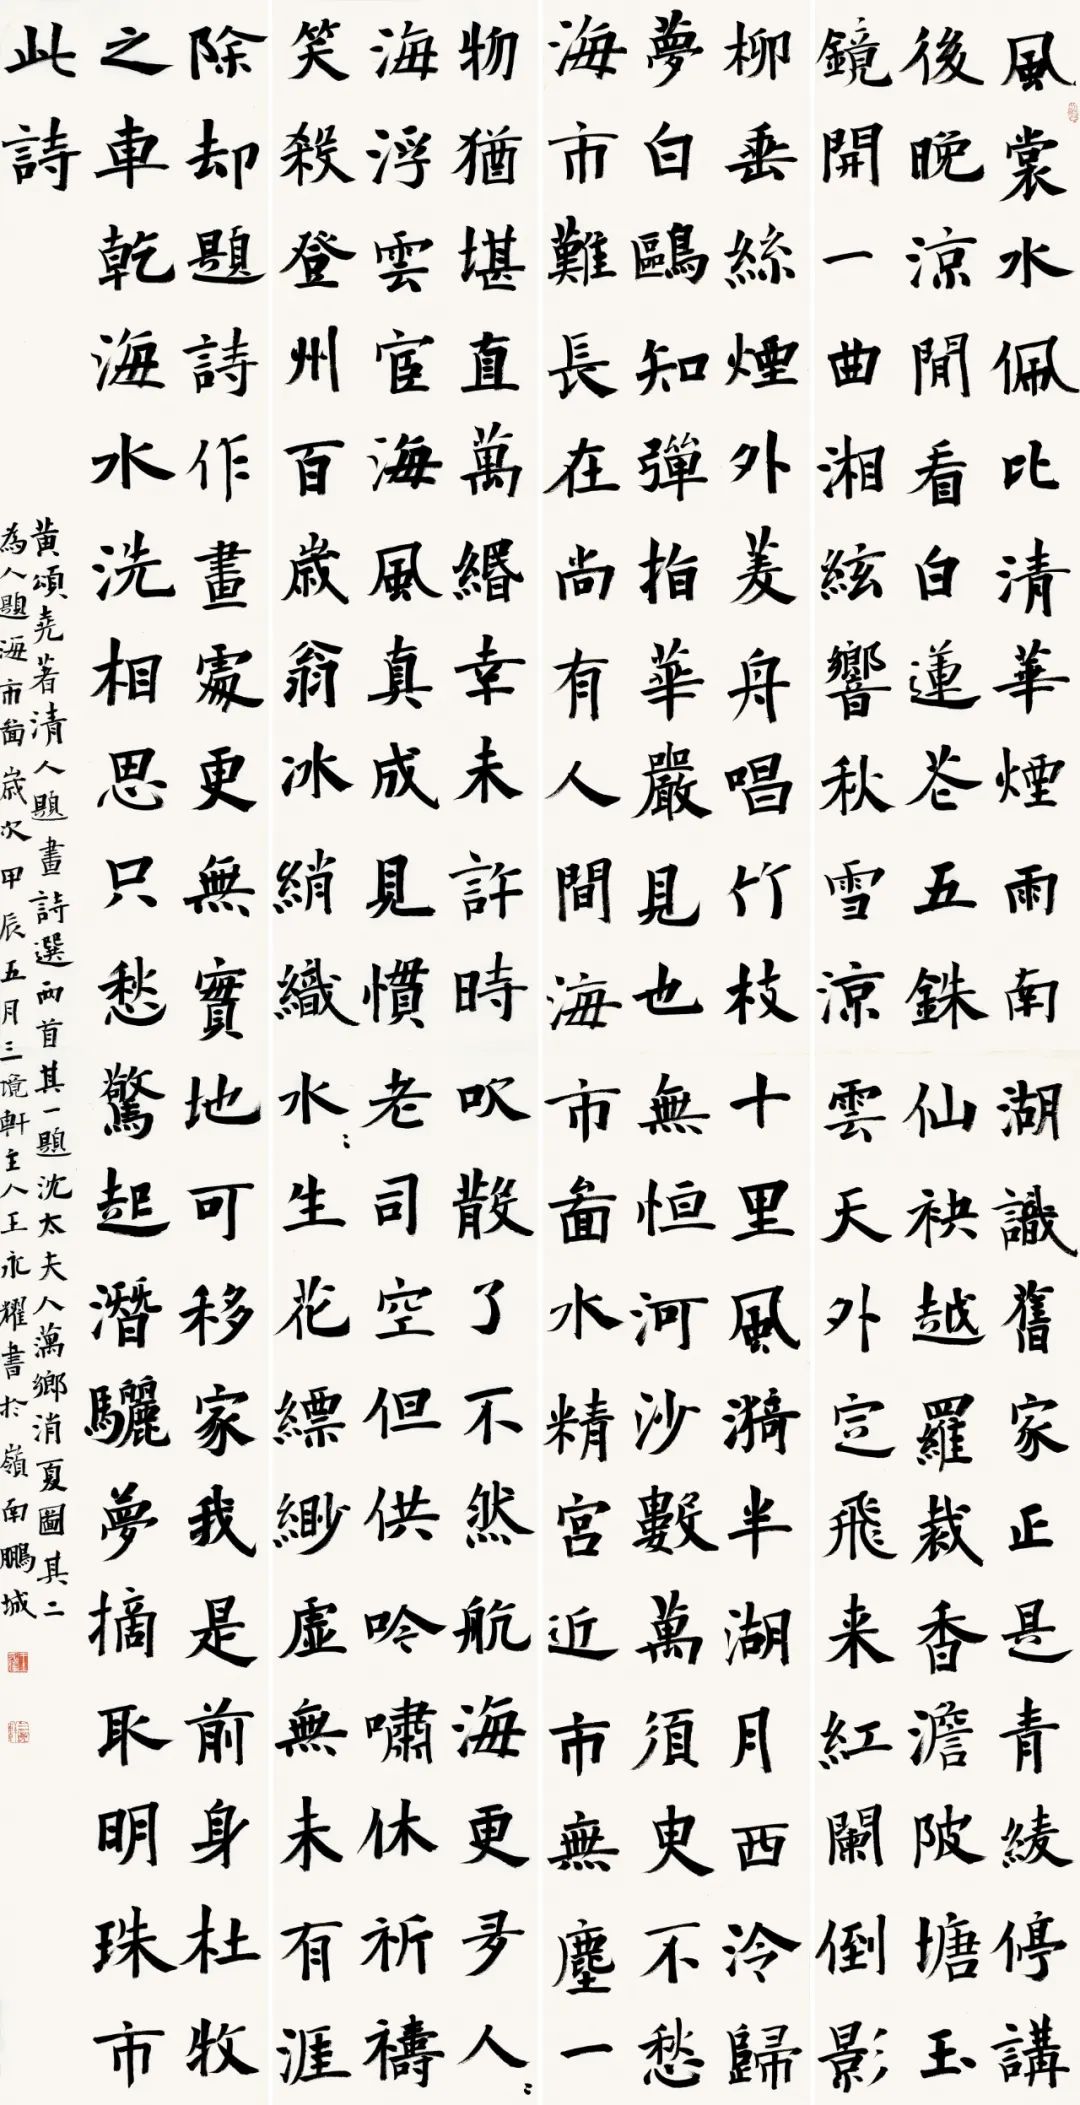 風裳水佩比清華煙雨南湖識舊家正是青綾停講
後晚涼閒看白蓮花五銖仙袂越羅裁香澹陂塘玉
鏡開一曲湘絃響秋雪涼雲天外定飛来紅闌倒影
柳垂絲煙外菱舟唱竹枝十里風漪半湖月西泠歸
夢白鷗知彈指華嚴見也無恒河沙數萬須臾不愁
海市難長在尚有人間海市啚水精宮近市無塵一
物猶堪直萬緡幸未許時吹散了不然航海更多人〻
海浮雲宦海風真成見慣老司空但供吟嘯休祈禱
笑殺登州百歲翁冰綃織水〻生花縹緲虛無未有涯
除却題詩作畫處更無實地可移家我是前身杜牧
之車乾海水洗相思只愁驚起潛驪夢摘取明珠市
此詩
黃頌堯著清人題畫詩選兩首其一題沈太夫人藕鄉消夏圖其二
為人題海市啚歲次甲辰五月三境軒主人王永耀書於嶺南鵬城